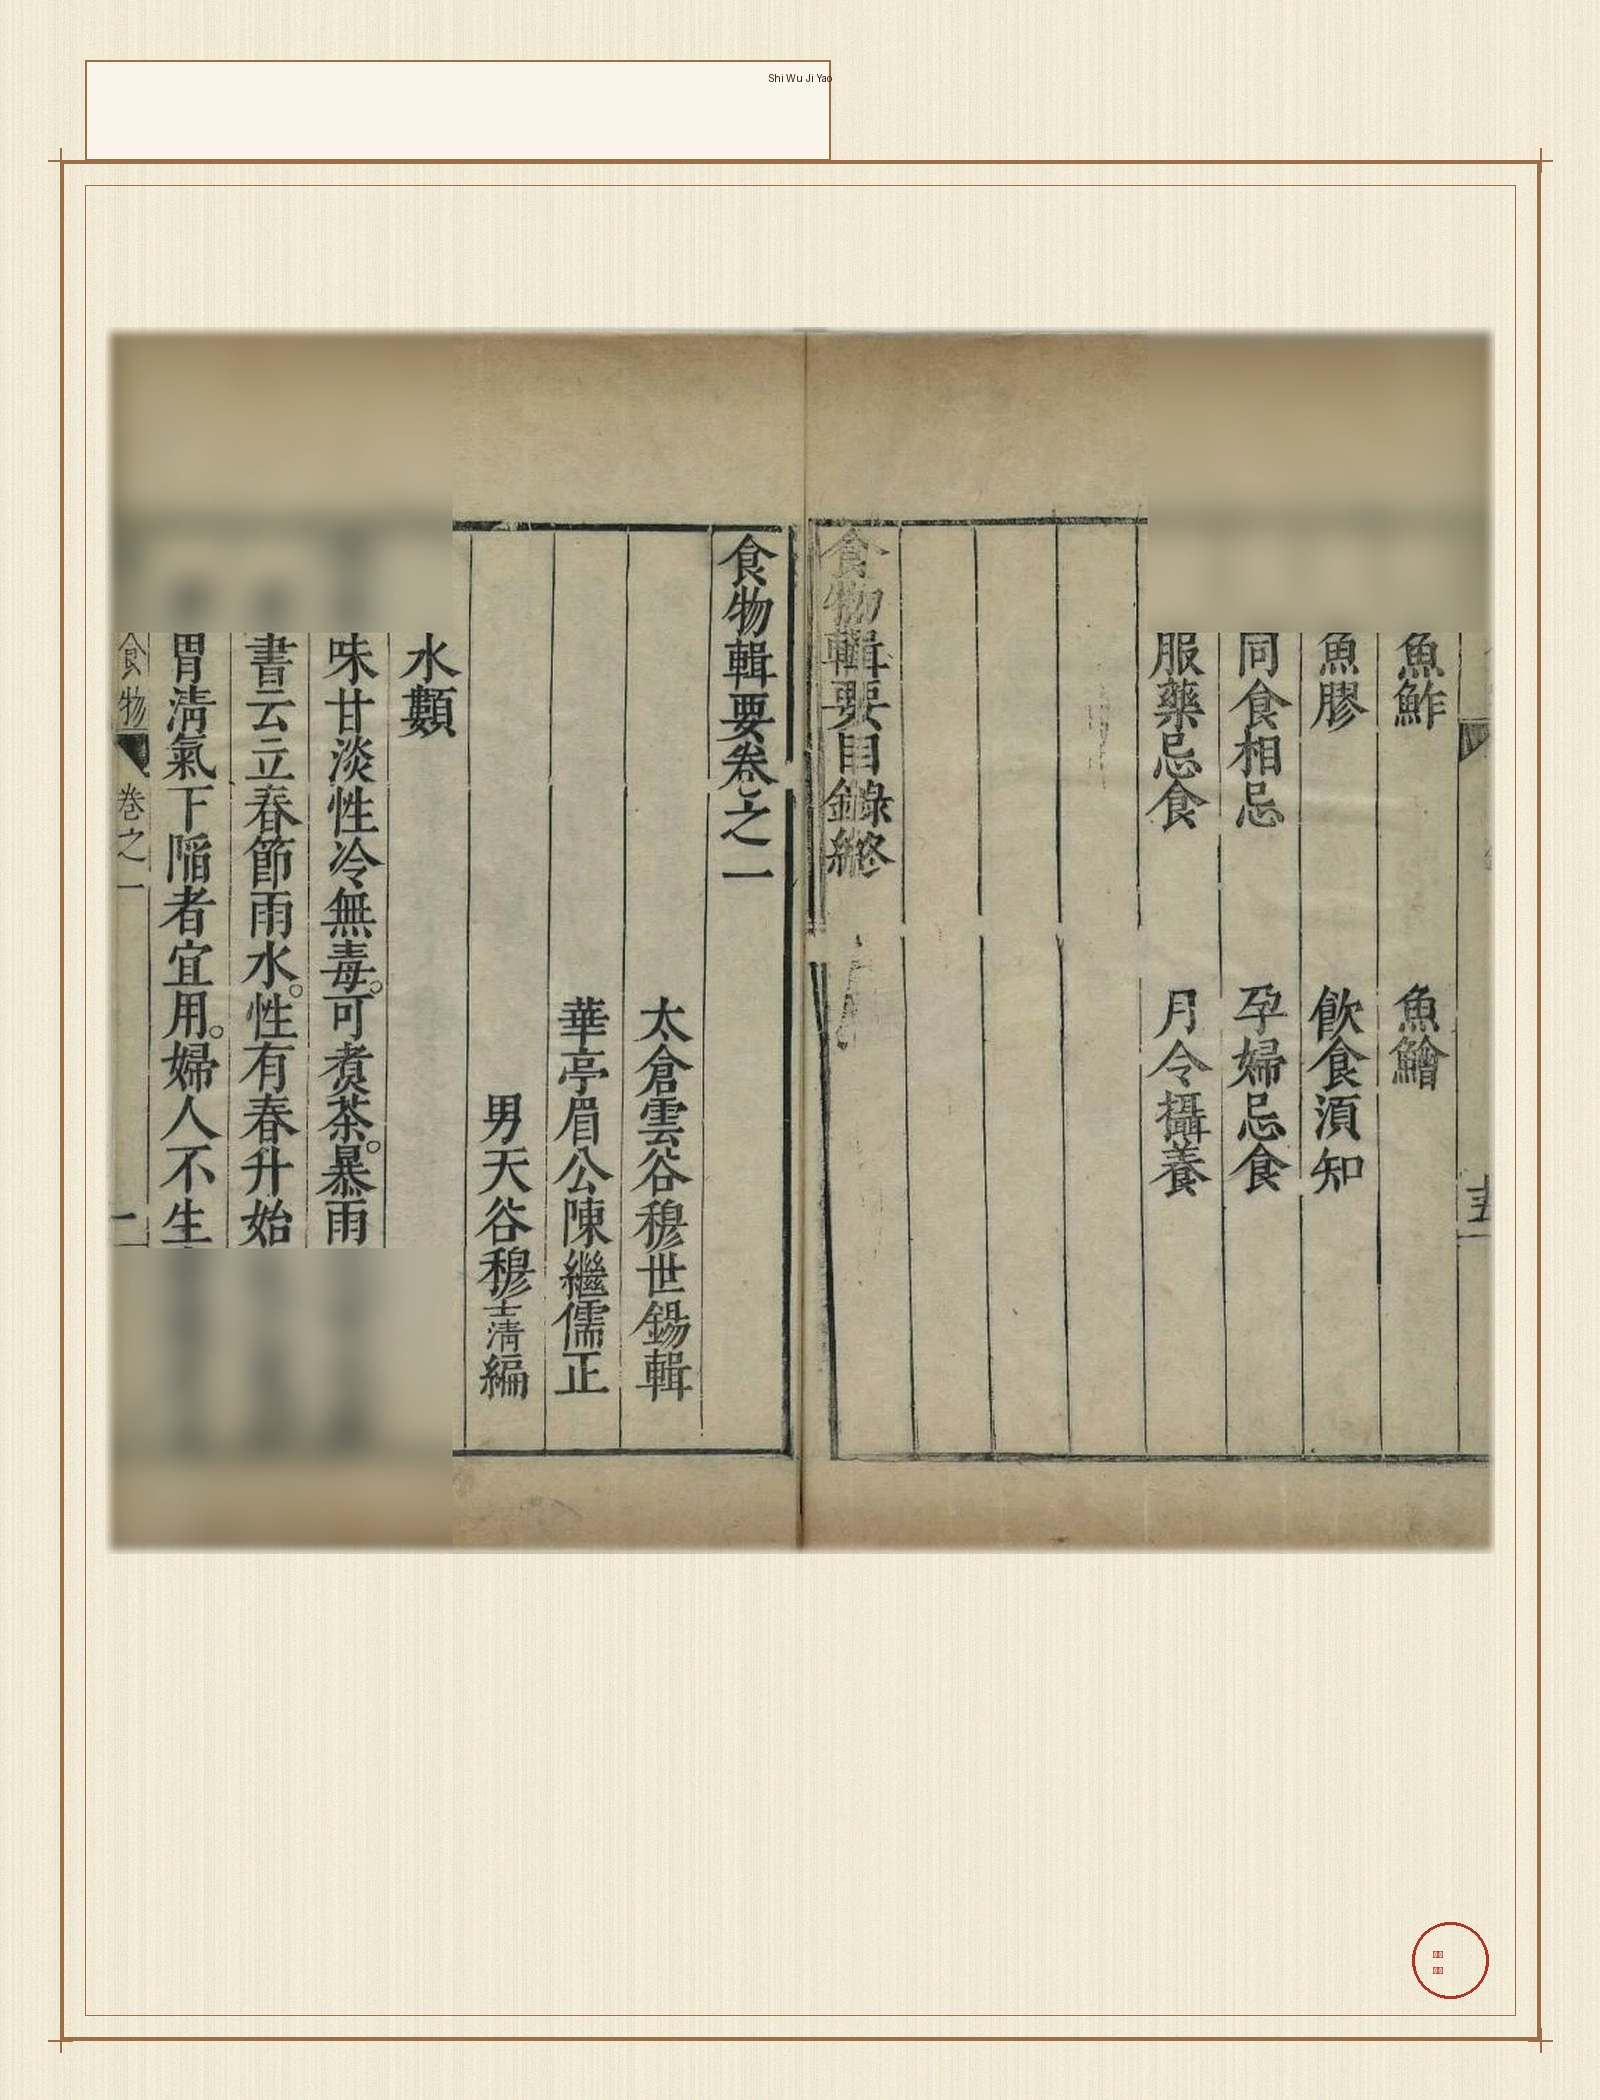 Shi Wu Ji Yao
魚鮓 魚鱠
魚膠 飲食湏知
同食相忌 孕婦忌食
服藥忌食 月令攝養
食物輯要目錄終
食物輯要卷之一
太倉雲谷穆世錫輯
華亭眉公陳繼儒正
男天谷穆士清編
水類
味甘淡性冷無毒。可煮茶。暴雨
書云立春節雨水。性有春升始
胃清氣下陷者宜用。婦人不生
食物 卷之一 一